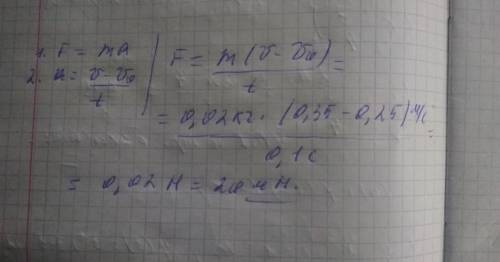 1. F = ma
2. a = (v - v₀) / t
F = m(v - v₀) / t =
= 0,02 кг · (0,35 - 0,25) м/с / 0,1 с =
= 0,02 Н = 20 мН.